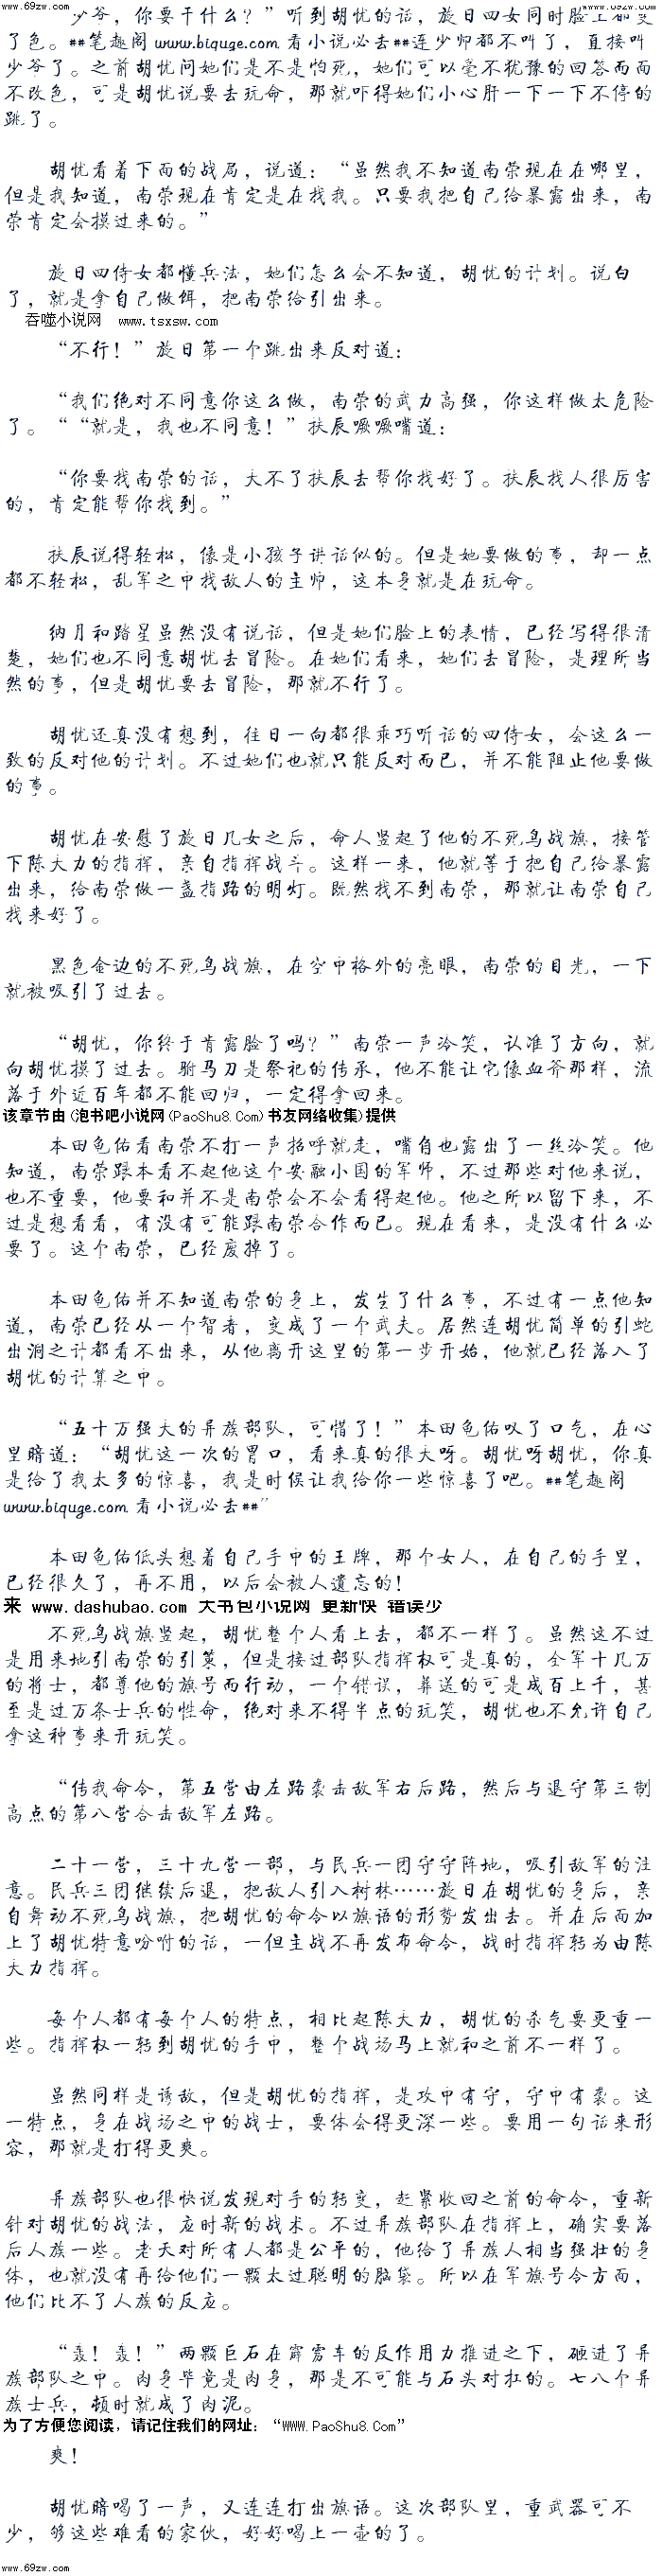 www.69zw.com www.69zw.com
“少爷，你要干什么？”听到胡忧的话，旋日四女同时脸上都变
了色。##笔趣阁 www.biquge.com 看小说必去##连少帅都不叫了，直接叫
少爷了。之前胡忧问她们是不是怕死，她们可以毫不犹豫的回答而面
不改色，可是胡忧说要去玩命，那就吓得她们小心肝一下一下不停的
跳了。
胡忧看着下面的战局，说道：“虽然我不知道南荣现在在哪里，
但是我知道，南荣现在肯定是在找我。只要我把自己给暴露出来，南
荣肯定会摸过来的。”
旋日四侍女都懂兵法，她们怎么会不知道，胡忧的计划。说白
了，就是拿自己做饵，把南荣给引出来。
吞噬小说网 www.tsxsw.com
“不行！”旋日第一个跳出来反对道：
“我们绝对不同意你这么做，南荣的武力高强，你这样做太危险
了。““就是，我也不同意！”扶辰噘噘嘴道：
“你要找南荣的话，大不了扶辰去帮你找好了。扶辰找人很厉害
的，肯定能帮你找到。”
扶辰说得轻松，像是小孩子讲话似的。但是她要做的事，却一点
都不轻松，乱军之中找敌人的主帅，这本身就是在玩命。
纳月和踏星虽然没有说话，但是她们脸上的表情，已经写得很清
楚，她们也不同意胡忧去冒险。在她们看来，她们去冒险，是理所当
然的事，但是胡忧要去冒险，那就不行了。
胡忧还真没有想到，往日一向都很乖巧听话的四侍女，会这么一
致的反对他的计划。不过她们也就只能反对而已，并不能阻止他要做
的事。
胡忧在安慰了旋日几女之后，命人竖起了他的不死鸟战旗，接管
下陈大力的指挥，亲自指挥战斗。这样一来，他就等于把自己给暴露
出来，给南荣做一盏指路的明灯。既然找不到南荣，那就让南荣自己
找来好了。
黑色金边的不死鸟战旗，在空中格外的亮眼，南荣的目光，一下
就被吸引了过去。
“胡忧，你终于肯露脸了吗？”南荣一声冷笑，认准了方向，就
向胡忧摸了过去。驸马刀是祭祀的传承，他不能让它像血斧那样，流
落于外近百年都不能回归，一定得拿回来。
该章节由(泡书吧小说网(PaoShu8.Com)书友网络收集)提供
本田龟佑看南荣不打一声招呼就走，嘴角也露出了一丝冷笑。他
知道，南荣跟本看不起他这个安融小国的军师，不过那些对他来说，
也不重要，他要和并不是南荣会不会看得起他。他之所以留下来，不
过是想看看，有没有可能跟南荣合作而已。现在看来，是没有什么必
要了。这个南荣，已经废掉了。
本田龟佑并不知道南荣的身上，发生了什么事，不过有一点他知
道，南荣已经从一个智者，变成了一个武夫。居然连胡忧简单的引蛇
出洞之计都看不出来，从他离开这里的第一步开始，他就已经落入了
胡忧的计算之中。
“五十万强大的异族部队，可惜了！”本田龟佑叹了口气，在心
里暗道：“胡忧这一次的胃口，看来真的很大呀。胡忧呀胡忧，你真
是给了我太多的惊喜，我是时候让我给你一些惊喜了吧。##笔趣阁
www.biquge.com 看小说必去##”
本田龟佑低头想着自己手中的王牌，那个女人，在自己的手里，
已经很久了，再不用，以后会被人遗忘的！
来 www.dashubao.com 大书包小说网 更新快 错误少
不死鸟战旗竖起，胡忧整个人看上去，都不一样了。虽然这不过
是用来地引南荣的引策，但是接过部队指挥权可是真的，全军十几万
的将士，都尊他的旗号而行动，一个错误，葬送的可是成百上千，甚
至是过万条士兵的性命，绝对来不得半点的玩笑，胡忧也不允许自己
拿这种事来开玩笑。
“传我命令，第五营由左路袭击敌军右后路，然后与退守第三制
高点的第八营合击敌军左路。
二十一营，三十九营一部，与民兵一团守守阵地，吸引敌军的注
意。民兵三团继续后退，把敌人引入树林……旋日在胡忧的身后，亲
自舞动不死鸟战旗，把胡忧的命令以旗语的形势发出去。并在后而加
上了胡忧特意吩咐的话，一但主战不再发布命令，战时指挥转为由陈
大力指挥。
每个人都有每个人的特点，相比起陈大力，胡忧的杀气要更重一
些。指挥权一转到胡忧的手中，整个战场马上就和之前不一样了。
虽然同样是诱敌，但是胡忧的指挥，是攻中有守，守中有袭。这
一特点，身在战场之中的战士，要体会得更深一些。要用一句话来形
容，那就是打得更爽。
异族部队也很快说发现对手的转变，赶紧收回之前的命令，重新
针对胡忧的战法，应时新的战术。不过异族部队在指挥上，确实要落
后人族一些。老天对所有人都是公平的，他给了异族人相当强壮的身
体，也就没有再给他们一颗太过聪明的脑袋。所以在军旗号令方面，
他们比不了人族的反应。
“轰！轰！”两颗巨石在霹雳车的反作用力推进之下，砸进了异
族部队之中。肉身毕竟是肉身，那是不可能与石头对扛的。七八个异
族士兵，顿时就成了肉泥。
为了方便您阅读，请记住我们的网址：“WWW.PaoShu8.Com”
爽！
胡忧暗喝了一声，又连连打出旗语。这次部队里，重武器可不
少，够这些难看的家伙，好好喝上一壶的了。
www.69zw.com